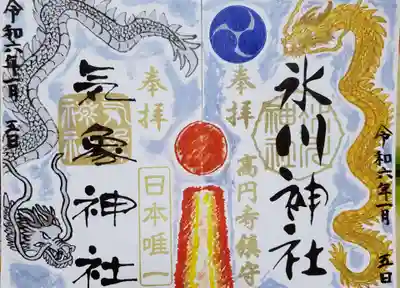 奉拝
氷川神社
高円寺鎮守
令和六年一月五日
令和六年一月五日
奉拝
気象神社
日本唯一